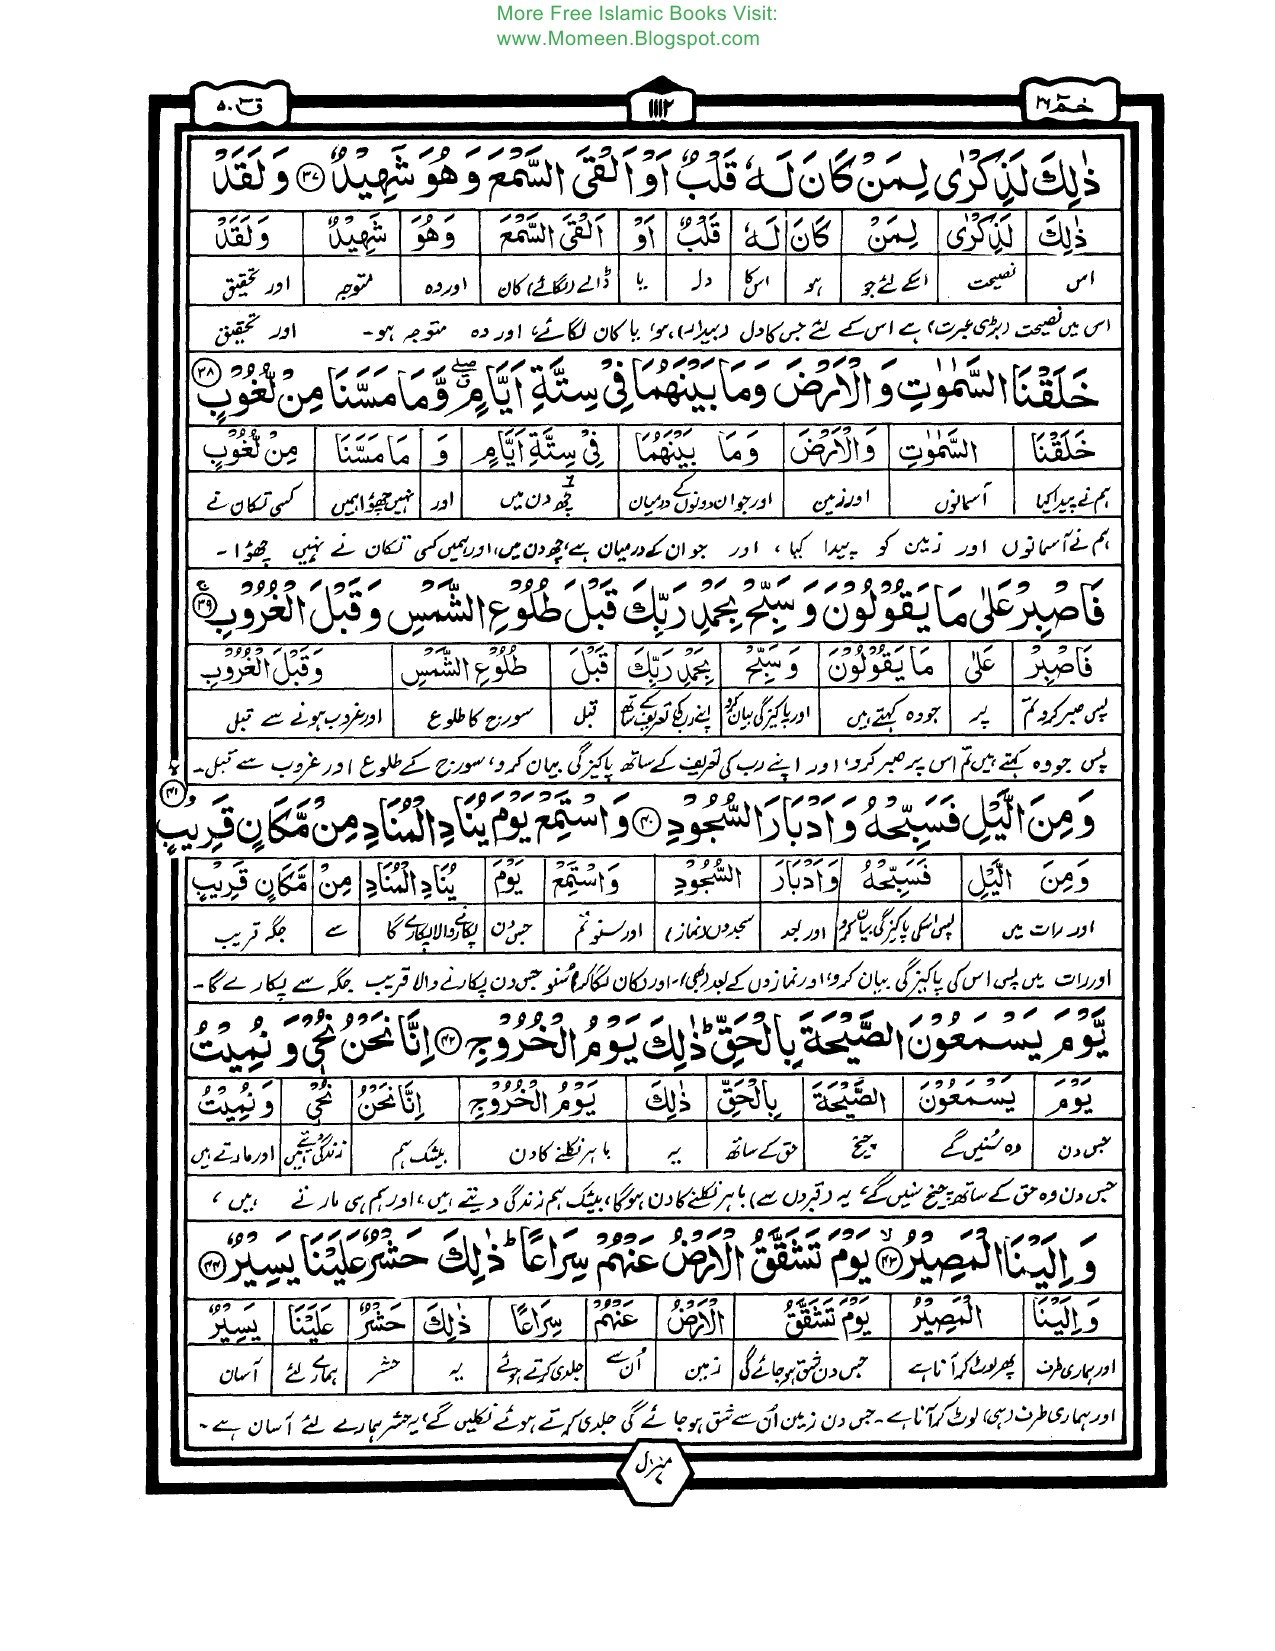 More Free Islamic Books Visit:
www.Momeen.Blogspot.com
حٰمٓ ٢٦
١١١٢
قٓ ٥٠
ذٰلِكَ لَذِكْرٰى لِمَنْ كَانَ لَهٗ قَلْبٌ اَوْ اَلْقَى السَّمْعَ وَهُوَ شَهِيْدٌ ﴿٣٧﴾ وَلَقَدْ
ذٰلِكَ لَذِكْرٰى لِمَنْ كَانَ لَهٗ قَلْبٌ اَوْ اَلْقَى السَّمْعَ وَهُوَ شَهِيْدٌ وَلَقَدْ
اس نصیحت اسکے لئے جو ہو اس کا دل یا ڈالے (لگائے) کان اور وہ متوجہ اور تحقیق
اس میں نصیحت (بڑی عبرت) ہے اس کے لئے جس کا دل (بیدار) ہو، یا کان لگائے، اور وہ متوجہ ہو۔ اور تحقیق
خَلَقْنَا السَّمٰوٰتِ وَالْاَرْضَ وَمَا بَيْنَهُمَا فِيْ سِتَّةِ اَيَّامٍ وَّمَا مَسَّنَا مِنْ لُّغُوْبٍ ﴿٣٨﴾
خَلَقْنَا السَّمٰوٰتِ وَالْاَرْضَ وَمَا بَيْنَهُمَا فِيْ سِتَّةِ اَيَّامٍ وَ مَا مَسَّنَا مِنْ لُّغُوْبٍ
ہم نے پیدا کیا آسمانوں اور زمین اور جو ان دونوں کے درمیان چھ دن میں اور نہیں چھؤا ہمیں کسی تکان نے
ہم نے آسمانوں اور زمین کو پیدا کیا، اور جو ان کے درمیان ہے، چھ دن میں، اور ہمیں کسی تکان نے نہیں چھؤا۔
فَاصْبِرْ عَلٰى مَا يَقُوْلُوْنَ وَسَبِّحْ بِحَمْدِ رَبِّكَ قَبْلَ طُلُوْعِ الشَّمْسِ وَقَبْلَ الْغُرُوْبِ ﴿٣٩﴾
فَاصْبِرْ عَلٰى مَا يَقُوْلُوْنَ وَسَبِّحْ بِحَمْدِ رَبِّكَ قَبْلَ طُلُوْعِ الشَّمْسِ وَقَبْلَ الْغُرُوْبِ
پس صبر کرو تم پر جو وہ کہتے ہیں اور پاکیزگی بیان کرو اپنے رب کی تعریف کے ساتھ قبل سورج کا طلوع اور غروب ہونے سے قبل
پس جو وہ کہتے ہیں تم اس پر صبر کرو، اور اپنے رب کی تعریف کے ساتھ پاکیزگی بیان کرو، سورج کے طلوع اور غروب سے قبل۔
وَمِنَ الَّيْلِ فَسَبِّحْهُ وَاَدْبَارَ السُّجُوْدِ ﴿٤٠﴾ وَاسْتَمِعْ يَوْمَ يُنَادِ الْمُنَادِ مِنْ مَّكَانٍ قَرِيْبٍ ﴿٤١﴾
وَمِنَ الَّيْلِ فَسَبِّحْهُ وَاَدْبَارَ السُّجُوْدِ وَاسْتَمِعْ يَوْمَ يُنَادِ الْمُنَادِ مِنْ مَّكَانٍ قَرِيْبٍ
اور رات میں پس اسکی پاکیزگی بیان کرو اور بعد سجدوں (نماز) اور سنو تم جس دن پکارنے والا پکارے گا سے جگہ قریب
اور رات میں پس اس کی پاکیزگی بیان کرو، اور نمازوں کے بعد (بھی)۔ اور تکان لگا کر سنو جس دن پکارنے والا قریب جگہ سے پکارے گا۔
يَّوْمَ يَسْمَعُوْنَ الصَّيْحَةَ بِالْحَقِّ ؕ ذٰلِكَ يَوْمُ الْخُرُوْجِ ﴿٤٢﴾ اِنَّا نَحْنُ نُحْيٖ وَنُمِيْتُ
يَوْمَ يَسْمَعُوْنَ الصَّيْحَةَ بِالْحَقِّ ذٰلِكَ يَوْمُ الْخُرُوْجِ اِنَّا نَحْنُ نُحْيٖ وَنُمِيْتُ
جس دن وہ سنیں گے چیخ حق کے ساتھ یہ باہر نکلنے کا دن بیشک ہم زندگی دیتے ہیں اور مارتے ہیں
جس دن وہ حق کے ساتھ چیخ سنیں گے، یہ (قبروں سے) باہر نکلنے کا دن ہوگا، بیشک ہم زندگی دیتے ہیں، اور ہم ہی مارتے ہیں،
وَاِلَيْنَا الْمَصِيْرُ ﴿٤٣﴾ يَوْمَ تَشَقَّقُ الْاَرْضُ عَنْهُمْ سِرَاعًا ؕ ذٰلِكَ حَشْرٌ عَلَيْنَا يَسِيْرٌ ﴿٤٤﴾
وَاِلَيْنَا الْمَصِيْرُ يَوْمَ تَشَقَّقُ الْاَرْضُ عَنْهُمْ سِرَاعًا ذٰلِكَ حَشْرٌ عَلَيْنَا يَسِيْرٌ
اور ہماری طرف پھر لوٹ کر آنا ہے جس دن شق ہو جائے گی زمین اُن سے جلدی کرتے ہوئے یہ حشر ہمارے لئے آسان
اور ہماری طرف (ہی) لوٹ کر آنا ہے۔ جس دن زمین اُن سے شق ہو جائے گی جلدی کرتے ہوئے نکلیں گے، یہ حشر ہمارے لئے آسان ہے۔
منزل ٧